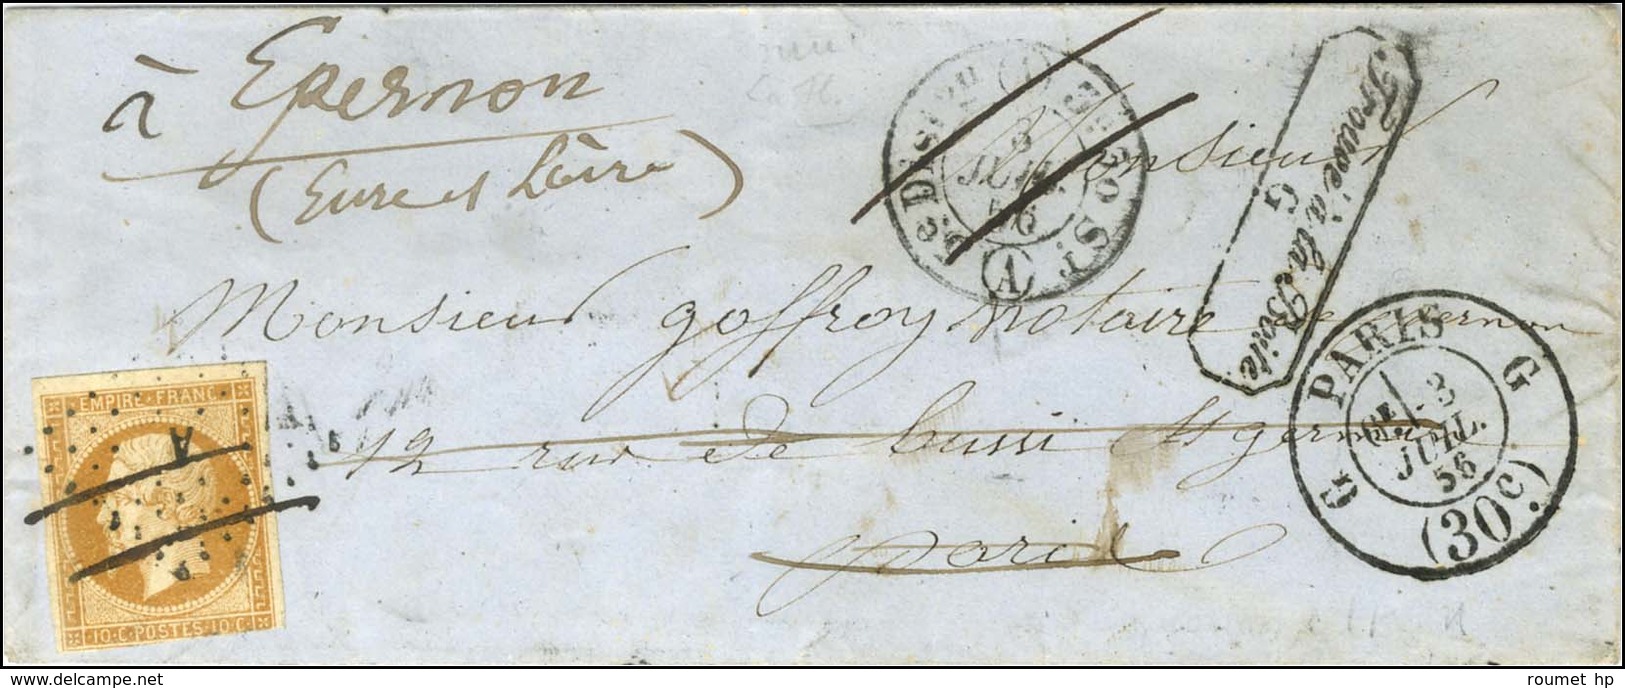 à Epernon
(Eure et Loire)
Monsieur
Monsieur Goffroy Notaire
12 rue de bussi St germain
Paris
Trouvé à la Boite
G
3
JUIL.
56
(1)
(A)
G PARIS G
6E
3
JUIL.
56
(30c.)
A
EMPIRE FRANC
10·C·POSTES·10·C·
roumet hp